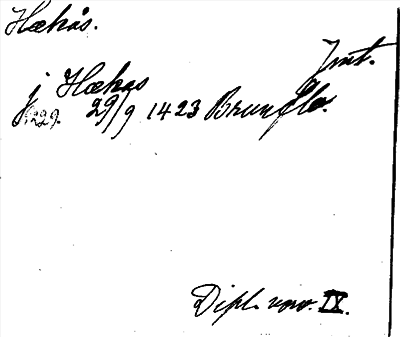 Hækås.
Jmt.
j Hækas
s. 229. 29/9 1423 Brunflo.
Dipl. norv. IX.